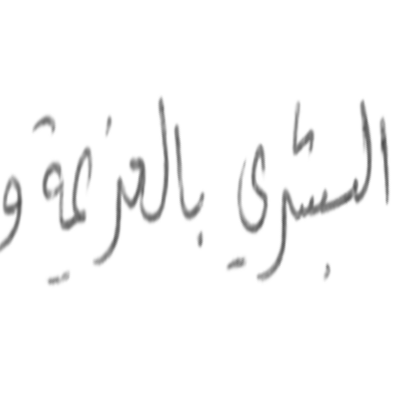 البشري بالعزيمة و